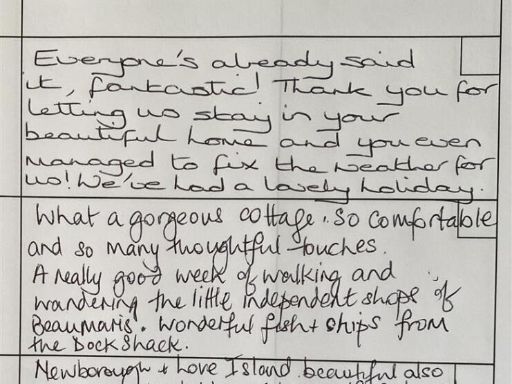 Everyone's already said
it, fantastic! Thank you for
letting us stay in your
beautiful home and you even
managed to fix the weather for
us! We've had a lovely holiday.
What a gorgeous cottage. So comfortable
and so many thoughtful touches.
A really good week of walking and
wandering the little independent shops of
Beaumaris. Wonderful fish + ships from
the Dock Shack.
Newborough + Love Island beautiful also